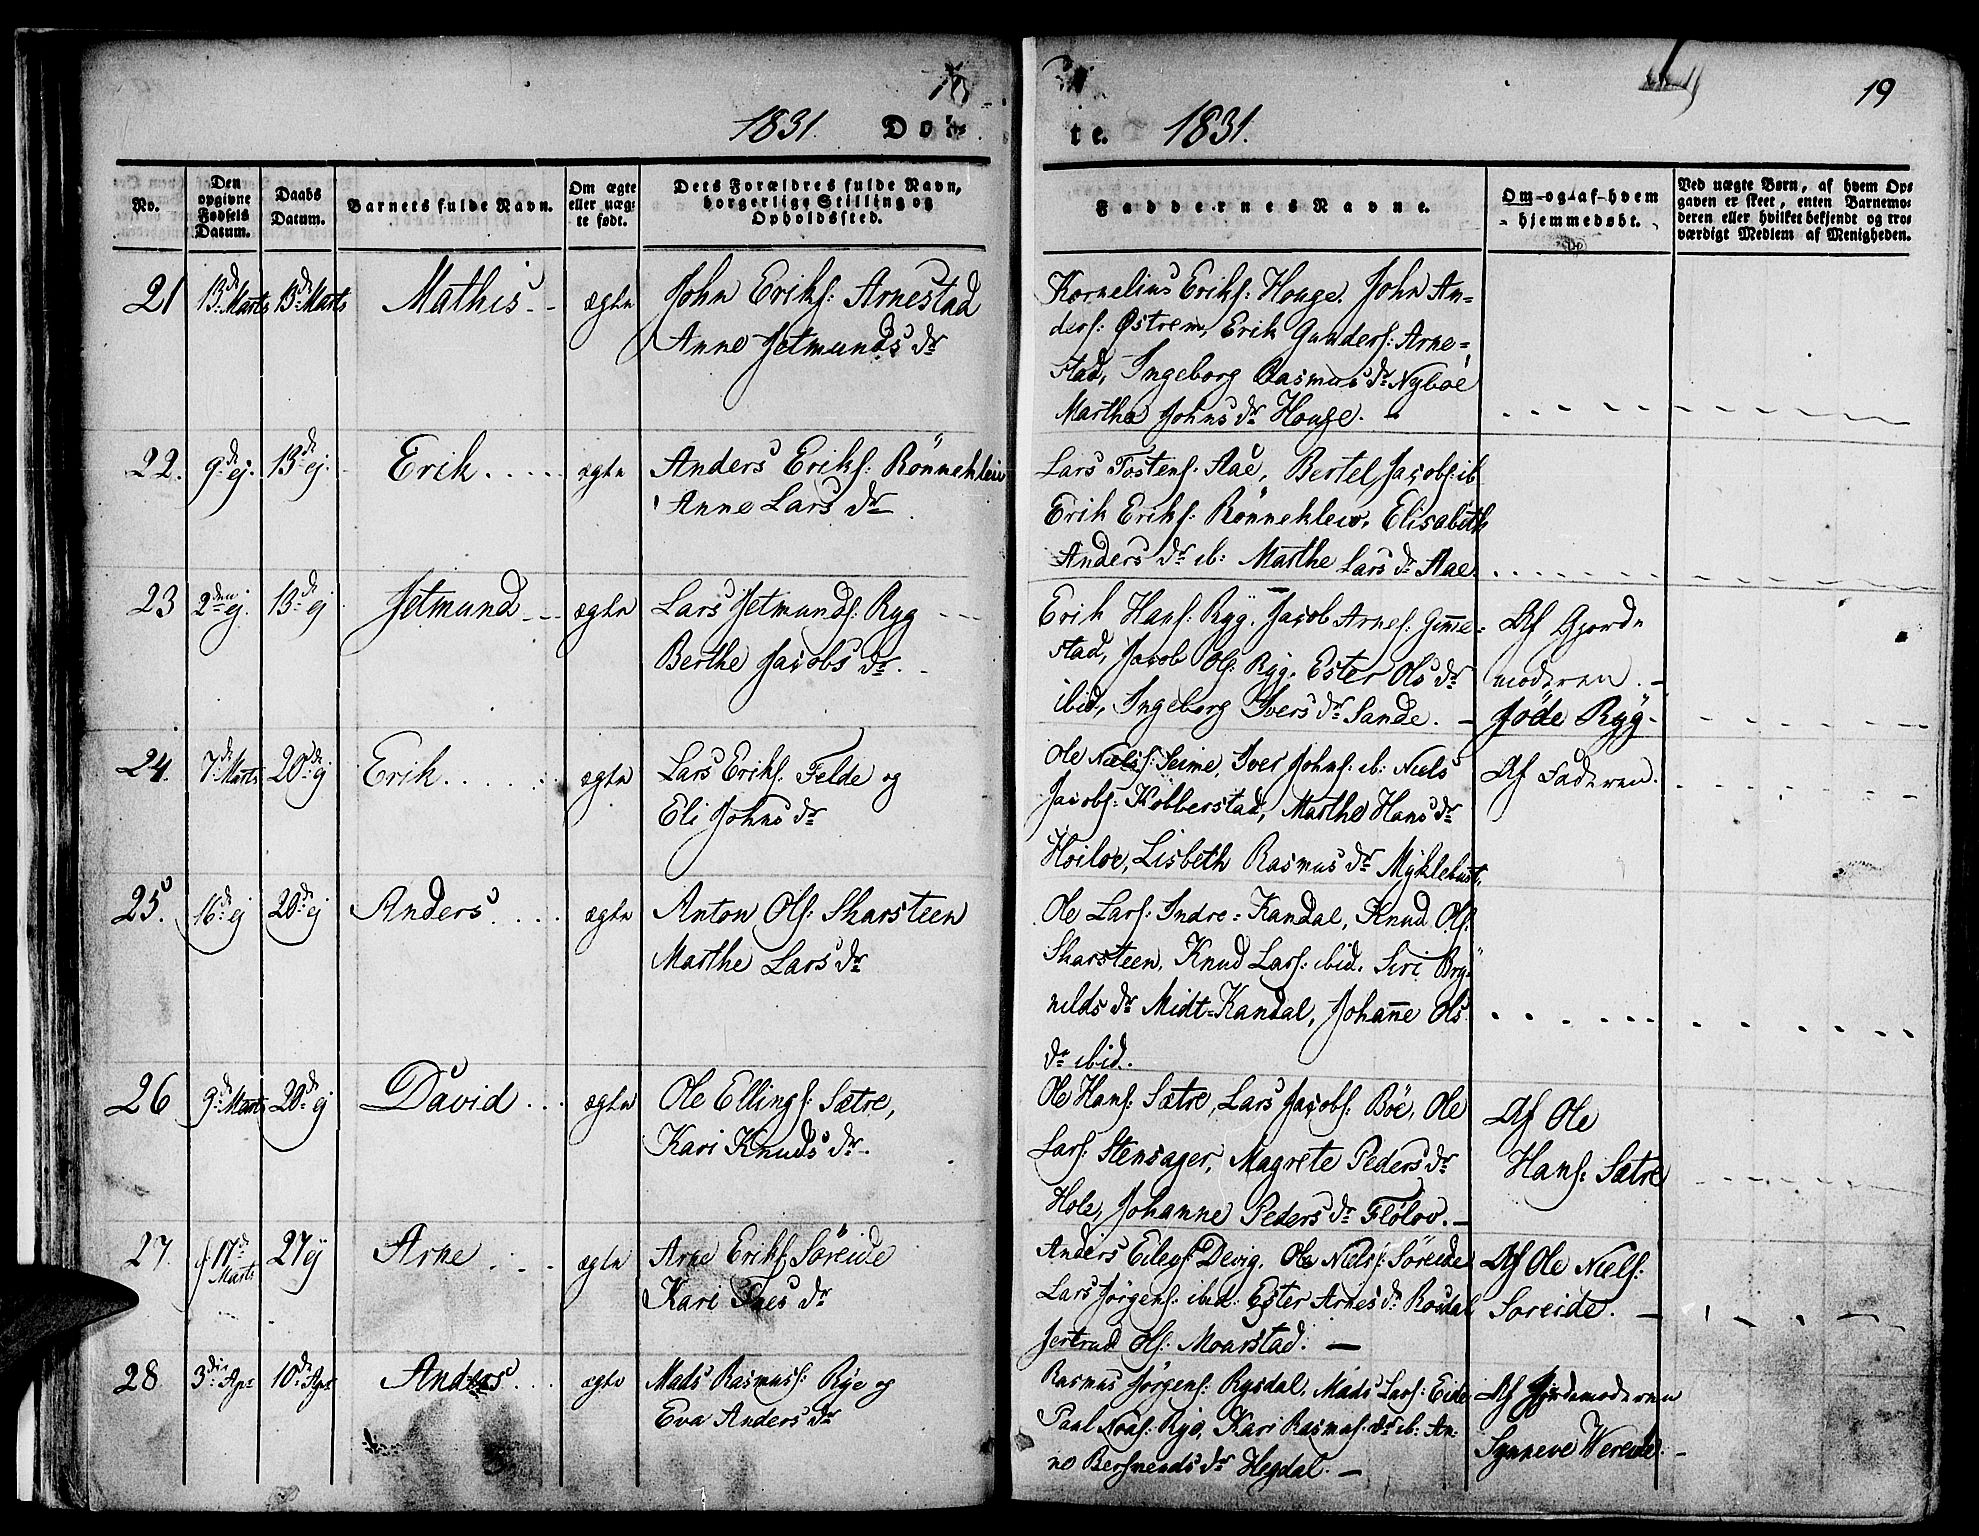 19
1831. Døb-
te. 1831.
No.
Den opgivne Fødsels Datum.
Daabs Datum.
Barnets fulde Navn.
Om ægte eller uæg-
te født.
Dets Forældres fulde Navn,
borgerlige Stilling og
Opholdssted.
Faddernes Navne.
Om og af hvem
hjemmedøbt.
Ved uægte Børn, af hvem Op-
gaven er skeet, enten Barnemo-
deren eller hvilket bekjendt og tro-
værdigt Medlem af Menigheden.
21 13de Marts 13de Marts Mathis - - ægte John Eriks: Arnestad
Anne Jetmunds dr
Kornelius Eriks: Houge, John An=
ders: Østrem, Erik Gunders: Arne=
stad, Ingeborg Rasmus dr Nyböe
Marthe Johns dr Houge. -
22. 9de ej. 13de ej. Erik . . . . ægte Anders Eriks: Rönneklein
Anne Lars dr
Lars Tostens: Aae, Bertel Jacobs: ib
Erik Eriks: Rönneklew, Elisabeth
Anders dr ib: Marthe Lars dr Aae.
23 2den ej. 13de ej Jetmund - - ægte Lars Jetmunds: Ryg
Berthe Jacobs dr. -
Erik Hans: Ryg, Jacob Arnes: Gim̅e=
stad, Jacob Ols: Ryg, Ester Ols dr
ibid, Ingeborg Ivers dr Sande. -
Af Gjorde
moderen. -
Jöde Ryg -
24. 7de Marts 20de ej Erik . . . ægte Lars Eriks: Felde og
Eli Johns dr
Ole Niels: Seime, Iver Johns: ib: Niels
Jacobs: Kobberstad, Marthe Hans dr
Hoiloe, Lisbeth Rasmus dr Myklebust.
Af Faderen.
25. 16de ej 20de ej Anders . . . . ægte Anton Ols: Skarsteen
Marthe Lars dr
Ole Lars: Indre=Kandal, Knud Ols:
Skarsteen, Knud Lars: ibid. Siri Bry=
nilds dr Midt=Kandal, Johan̅e Ols
dr ibid.
26 9de Marts 20de ej David . . . ægte Ole Ellings: Sætre,
Kari Knuds dr -
Ole Hans: Sætre, Lars Jacobs: Böe, Ole
Lars: Stensager, Magrete Peders dr
Hole, Johanne Peders dr Flölov. -
Af Ole
Hans: Sætre
27. 17de Marts 27 ej Arne ægte Arne Eriks: Söreide
Kari Ives dr
Anders Eilegs: Devig, Ole Niels: Söreide
Lars Jörgens: ibid: Ester Arnes dr Rosdal
Jertrud Ols: Moarstad. -
Af Ole Niels:
Soreide. -
28 3die Apr 10de Apr Anders . . . ægte Mads Rasmuss: Rye og
Eva Anders dr
Rasmus Jörgens: Rysdal, Mads Lars: Eide
Paul Noas: Rye, Kari Rasmus: dr ib: An-
ne Bersvends dr Hegdal. -
Af Jordemoderen
Synneve Wereide. -